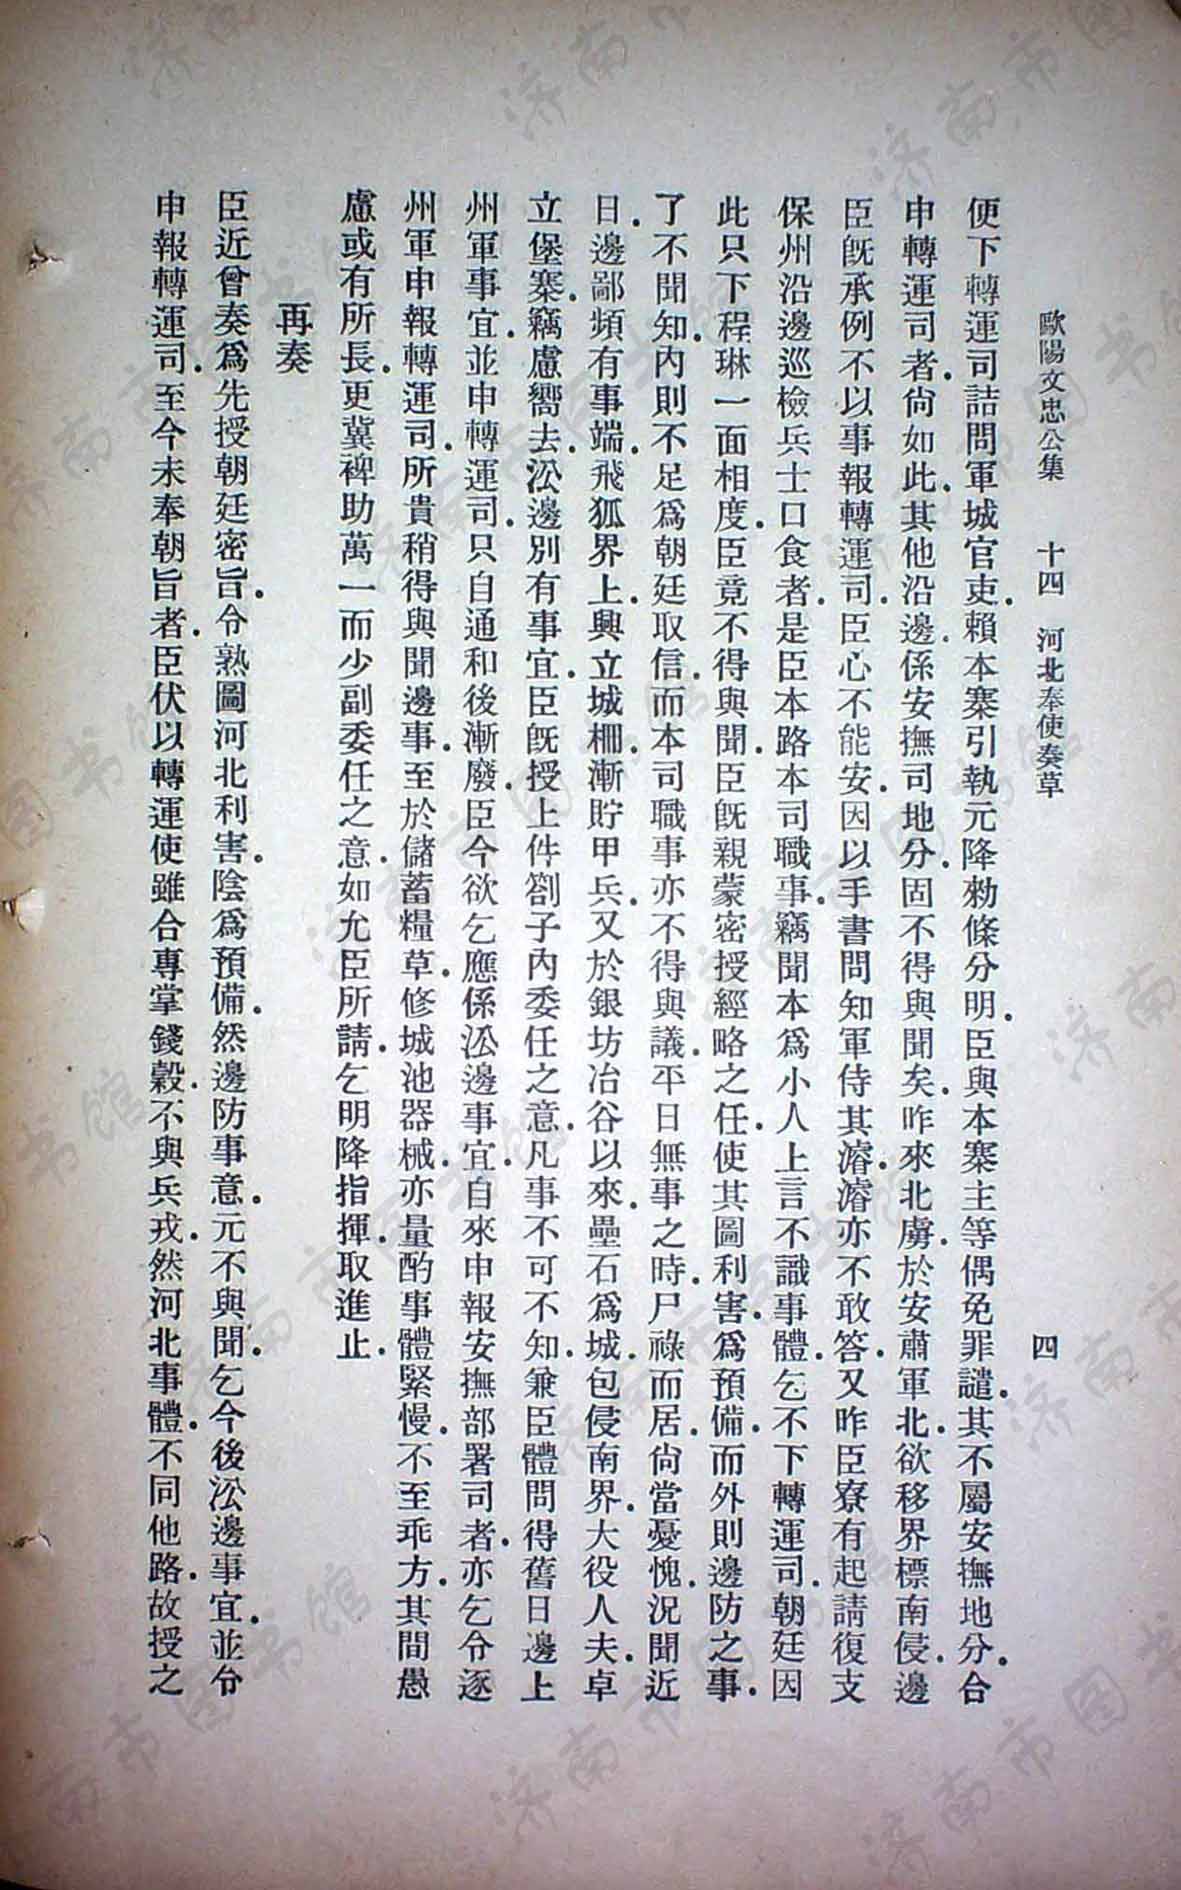 歐陽文忠公集 十四 河北奉使奏草 四
便下轉運司詰問軍城官吏.賴本寨引執元降勑條分明.臣與本寨主等偶免罪譴.其不屬安撫地分.合
申轉運司者.尚如此.其他沿邊.係安撫司地分.固不得與聞矣.昨來北虜.於安肅軍北.欲移界標南侵.邊
臣旣承例不以事報轉運司.臣心不能安.因以手書問知軍侍其濬.濬亦不敢答.又昨臣寮有起請復支
保州沿邊巡檢兵士口食者.是臣本路本司職事.竊聞本爲小人上言不識事體.乞不下轉運司.朝廷因
此只下程琳一面相度.臣竟不得與聞.臣旣親蒙密授經略之任.使其圖利害.爲預備.而外則邊防之事.
了不聞知.內則不足爲朝廷取信.而本司職事亦不得與議.平日無事之時.尸祿而居.尚當憂愧.況聞近
日.邊鄙頻有事端.飛狐界上.興立城柵.漸貯甲兵.又於銀坊冶谷以來.壘石爲城.包侵南界.大役人夫.卓
立堡寨.竊慮嚮去.㳂邊別有事宜.臣旣授上件劄子內委任之意.凡事不可不知.兼臣體問得舊日邊上
州軍事宜.並申轉運司.只自通和後漸廢.臣今欲乞應係㳂邊事宜.自來申報安撫部署司者.亦乞令逐
州軍申報轉運司.所貴稍得與聞邊事.至於儲蓄糧草.修城池器械.亦量酌事體緊慢.不至乖方.其間愚
慮或有所長.更冀裨助萬一而少副委任之意.如允臣所請.乞明降指揮.取進止.
再奏
臣近曾奏爲先授朝廷密旨.令熟圖河北利害.陰爲預備.然邊防事意.元不與聞.乞今後㳂邊事宜.並令
申報轉運司.至今未奉朝旨者.臣伏以轉運使雖合專掌錢穀.不與兵戎.然河北事體.不同他路.故授之
济南市图书馆